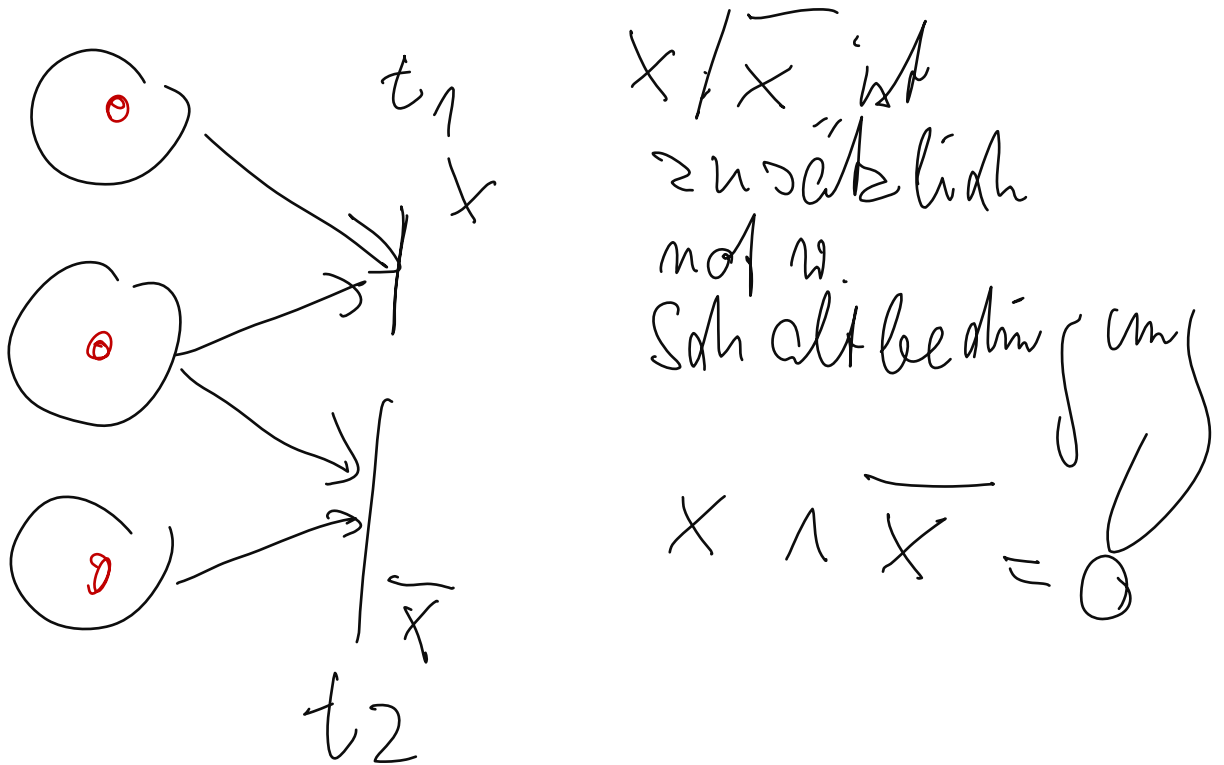 t1
x
x̅
t2
x/x̅ ist
zusätzlich
notw.
Schaltbedingung
x ∧ x̅ = 0